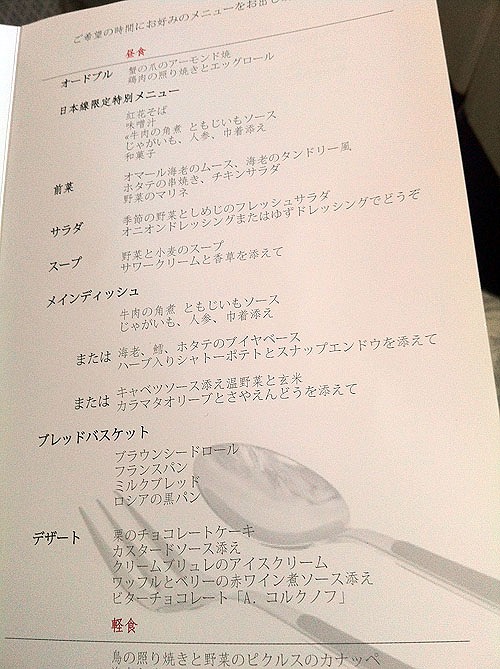 ご希望の時間にお好みのメニューをお出し
昼食
オードブル
蟹の爪のアーモンド焼
鶏肉の照り焼きとエッグロール
日本線限定特別メニュー
紅花そば
味噌汁
«牛肉の角煮 ともじいもソース
じゃがいも、人参、巾着添え
和菓子
前菜
オマール海老のムース、海老のタンドリー風
ホタテの串焼き、チキンサラダ
野菜のマリネ
サラダ
季節の野菜としめじのフレッシュサラダ
オニオンドレッシングまたはゆずドレッシングでどうぞ
スープ
野菜と小麦のスープ
サワークリームと香草を添えて
メインディッシュ
牛肉の角煮 ともじいもソース
じゃがいも、人参、巾着添え
または
海老、鱈、ホタテのブイヤベース
ハーブ入りシャトーポテトとスナップエンドウを添えて
または
キャベツソース添え温野菜と玄米
カラマタオリーブとさやえんどうを添えて
ブレッドバスケット
ブラウンシードロール
フランスパン
ミルクブレッド
ロシアの黒パン
デザート
栗のチョコレートケーキ
カスタードソース添え
クリームブリュレのアイスクリーム
ワッフルとベリーの赤ワイン煮ソース添え
ビターチョコレート「A. コルクノフ」
軽食
鳥の照り焼きと野菜のピクルスのカナッペ